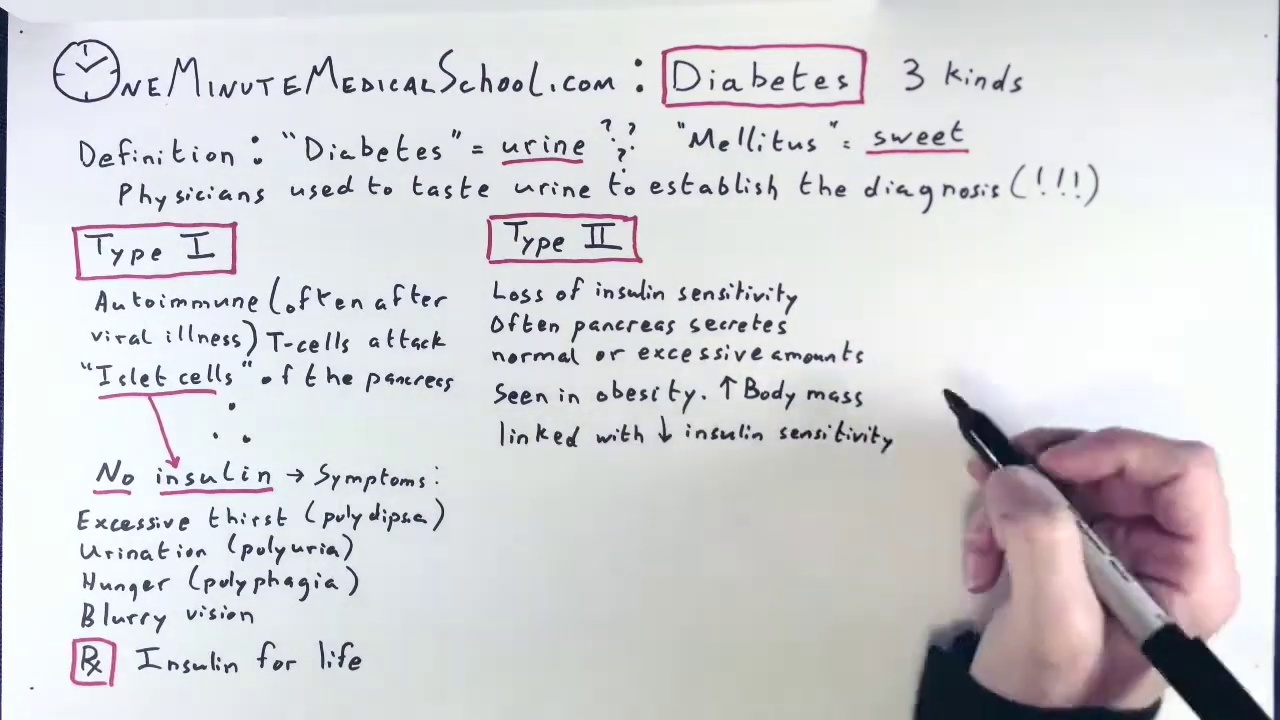 OneMinuteMedicalSchool.com : Diabetes 3 kinds
Definition : "Diabetes" = urine ??? "Mellitus" = sweet
Physicians used to taste urine to establish the diagnosis (!!!)
Type I
Autoimmune (often after
viral illness) T-cells attack
"Islet cells" of the pancreas
No insulin → Symptoms:
Excessive thirst (polydipsia)
Urination (polyuria)
Hunger (polyphagia)
Blurry vision
Rx Insulin for life
Type II
Loss of insulin sensitivity
Often pancreas secretes
normal or excessive amounts
Seen in obesity. ↑ Body mass
linked with ↓ insulin sensitivity